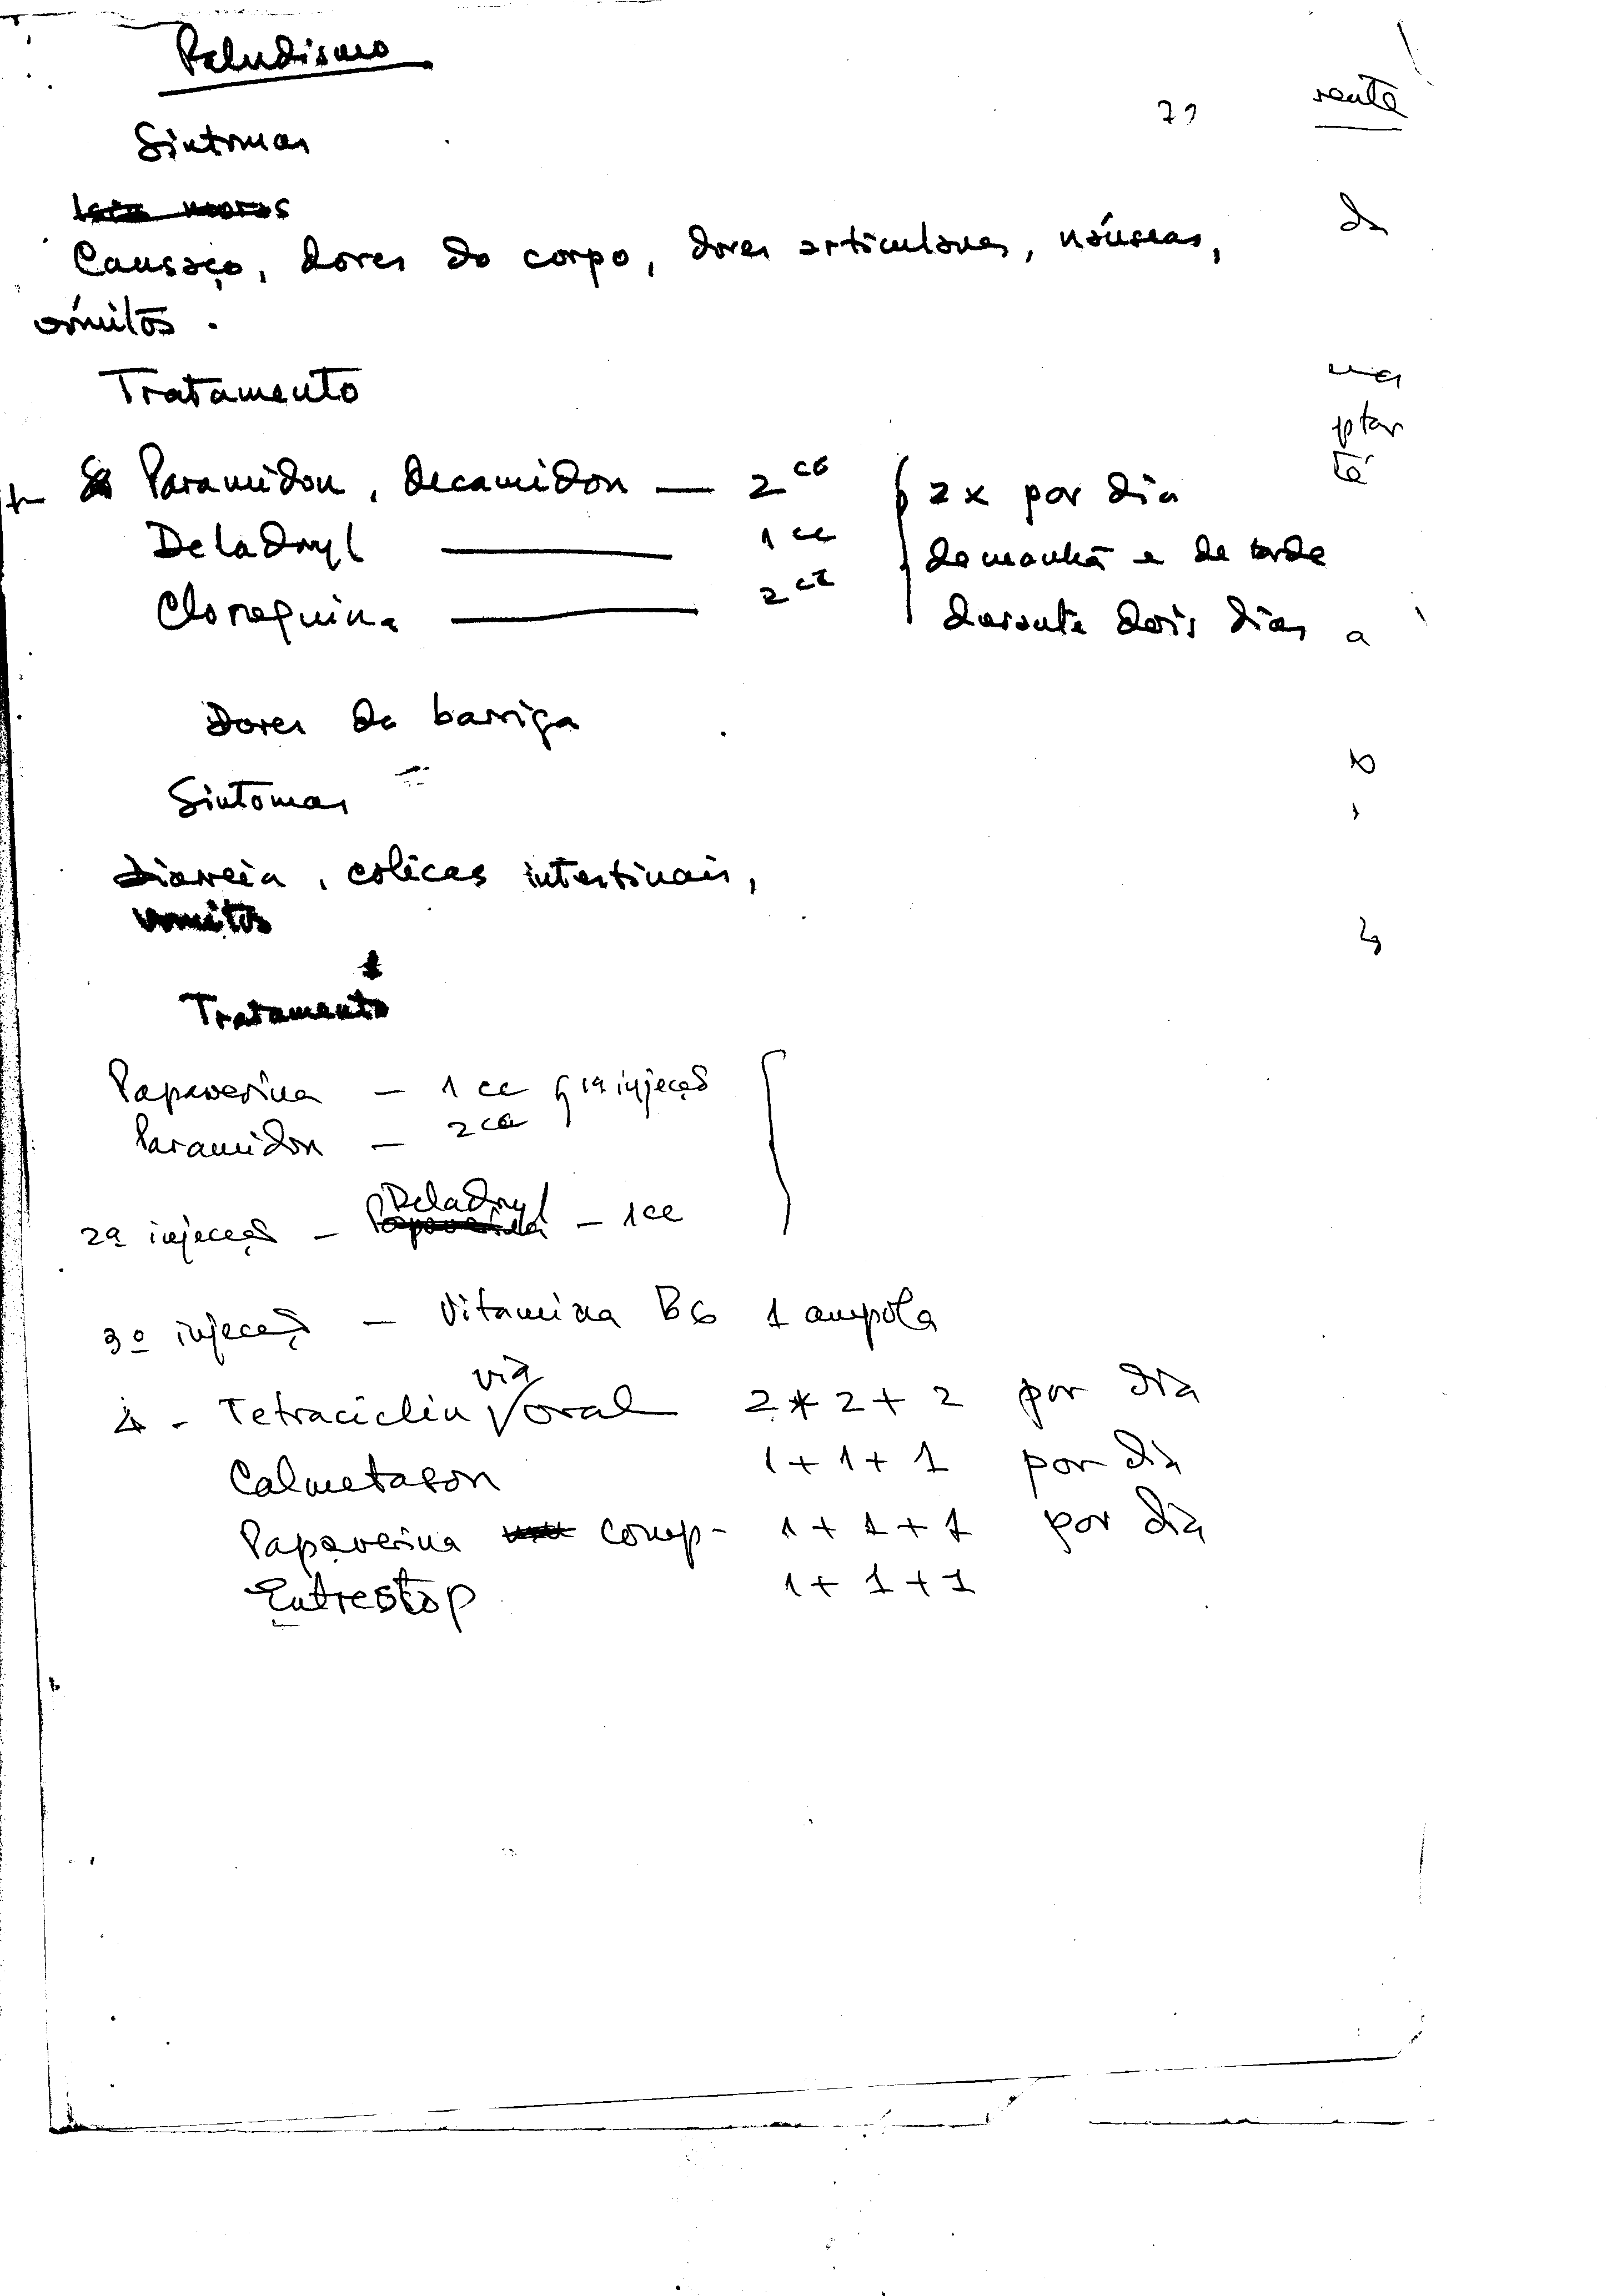 Paludismo
Sintomas
Cansaço, dores do corpo, dores articulares, náuseas,
vómitos.
Tratamento
Paramidon, decamidon — 2 cc { 2 x por dia
Deladryl — 1 cc de manhã e de tarde
Cloroquina — 2 cc durante dois dias
Dores de barriga
Sintomas
Diarreia, cólicas intestinais,
vomitos
Tratamento
Papaverina — 1 cc } 1ª injeção
Paramidon — 2 cc
2ª injeção — Deladryl — 1cc
3º injeção — Vitamina B6 1 ampola
4 - Tetraciclin via oral 2 + 2 + 2 por dia
Calmetason 1 + 1 + 1 por dia
Papaverina comp- 1 + 1 + 1 por dia
Entrestop 1 + 1 + 1